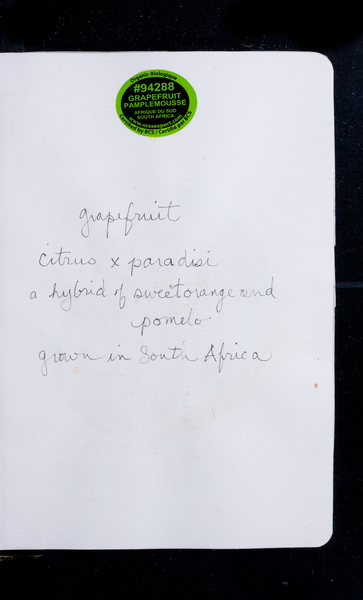 Organic-Biologique
#94288
GRAPEFRUIT
PAMPLEMOUSSE
AFRIQUE DU SUD
SOUTH AFRICA
www.orcxexport.com
Certified by BCS / Certifié par BCS
grapefruit
citrus x paradisi
a hybrid of sweet orange and
pomelo
grown in South Africa